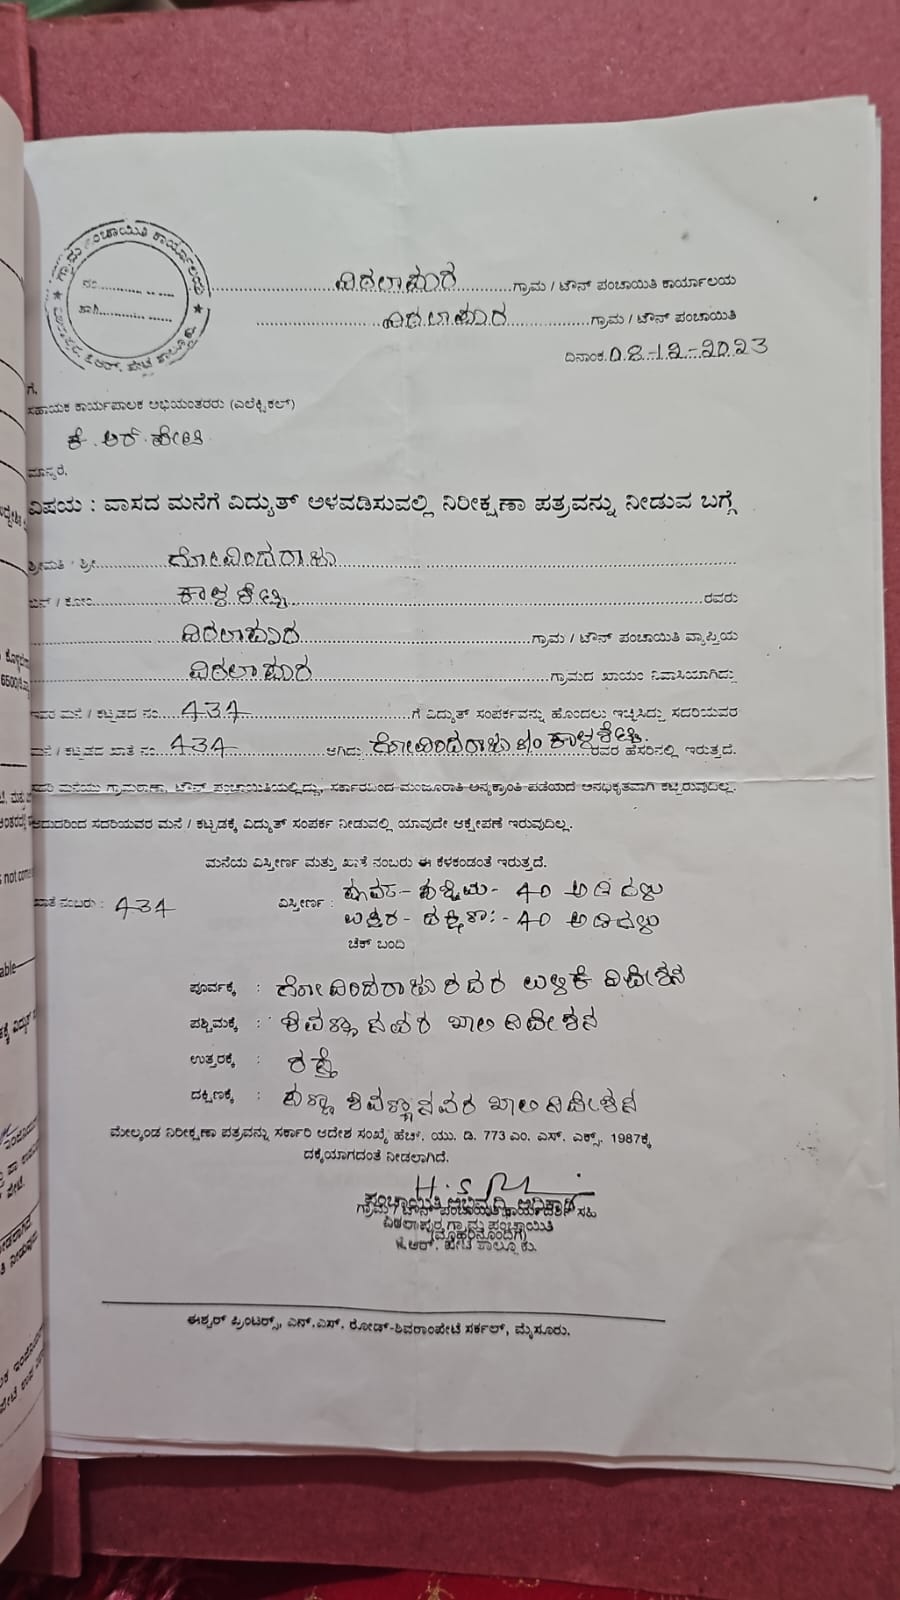 ಗ್ರಾಮ ಪಂಚಾಯಿತಿ ಕಾರ್ಯಾಲಯ
ನಂ............ .. ....
ತಾ||............ ......
ಕೆ.ಆರ್. ಪೇಟೆ ತಾಲ್ಲೂಕು
ವಿಠಲಾಪುರ ಗ್ರಾಮ / ಟೌನ್ ಪಂಚಾಯಿತಿ ಕಾರ್ಯಾಲಯ
ವಿಠಲಾಪುರ ಗ್ರಾಮ / ಟೌನ್ ಪಂಚಾಯಿತಿ
ದಿನಾಂಕ. 08-12-2023
ಗೆ,
ಸಹಾಯಕ ಕಾರ್ಯಪಾಲಕ ಅಭಿಯಂತರರು (ಎಲೆಕ್ಟ್ರಿಕಲ್)
ಕೆ. ಆರ್. ಪೇಟೆ
ಮಾನ್ಯರೆ,
ವಿಷಯ : ವಾಸದ ಮನೆಗೆ ವಿದ್ಯುತ್ ಅಳವಡಿಸುವಲ್ಲಿ ನಿರೀಕ್ಷಣಾ ಪತ್ರವನ್ನು ನೀಡುವ ಬಗ್ಗೆ
ಶ್ರೀಮತಿ / ಶ್ರೀ ಗೋವಿಂದರಾಜು
ಬಿನ್ / ಕೋಂ ಕಾಳಶೆಟ್ಟಿ ರವರು
ವಿಠಲಾಪುರ ಗ್ರಾಮ / ಟೌನ್ ಪಂಚಾಯಿತಿ ವ್ಯಾಪ್ತಿಯ
ವಿಠಲಾಪುರ ಗ್ರಾಮದ ಖಾಯಂ ನಿವಾಸಿಯಾಗಿದ್ದು
ಇವರ ಮನೆ / ಕಟ್ಟಡದ ನಂ. 434 ಗೆ ವಿದ್ಯುತ್ ಸಂಪರ್ಕವನ್ನು ಹೊಂದಲು ಇಚ್ಛಿಸಿದ್ದು ಸದರಿಯವರ
ಮನೆ / ಕಟ್ಟಡದ ಖಾತೆ ನಂ. 434 ಆಗಿದ್ದು ಗೋವಿಂದರಾಜು ಕಾಳಶೆಟ್ಟಿ ರವರ ಹೆಸರಿನಲ್ಲಿ ಇರುತ್ತದೆ.
ಸದರಿ ಮನೆಯು ಗ್ರಾಮಠಾಣಾ, ಟೌನ್ ಪಂಚಾಯಿತಿಯಲ್ಲಿದ್ದು, ಸರ್ಕಾರದಿಂದ ಮಂಜೂರಾತಿ ಅನ್ಯಕ್ರಾಂತಿ ಪಡೆಯದೆ ಅನಧಿಕೃತವಾಗಿ ಕಟ್ಟಿರುವುದಿಲ್ಲ.
ಆದುದರಿಂದ ಸದರಿಯವರ ಮನೆ / ಕಟ್ಟಡಕ್ಕೆ ವಿದ್ಯುತ್ ಸಂಪರ್ಕ ನೀಡುವಲ್ಲಿ ಯಾವುದೇ ಆಕ್ಷೇಪಣೆ ಇರುವುದಿಲ್ಲ.
ಮನೆಯ ವಿಸ್ತೀರ್ಣ ಮತ್ತು ಖಾತೆ ನಂಬರು ಈ ಕೆಳಕಂಡಂತೆ ಇರುತ್ತದೆ.
ಖಾತೆ ನಂಬರು : 434 ವಿಸ್ತೀರ್ಣ : ಪೂರ್ವ - ಪಶ್ಚಿಮ - 40 ಅಡಿಗಳು
ಉತ್ತರ - ದಕ್ಷಿಣ :- 40 ಅಡಿಗಳು
ಚೆಕ್ ಬಂದಿ
ಪೂರ್ವಕ್ಕೆ : ಗೋವಿಂದರಾಜು ರವರ ಉಳಿಕೆ ನಿವೇಶನ
ಪಶ್ಚಿಮಕ್ಕೆ : ಶಿವಣ್ಣನವರ ಖಾಲಿ ನಿವೇಶನ
ಉತ್ತರಕ್ಕೆ : ರಸ್ತೆ
ದಕ್ಷಿಣಕ್ಕೆ : ಶಿವಣ್ಣನವರ ಖಾಲಿ ನಿವೇಶನ
ಮೇಲ್ಕಂಡ ನಿರೀಕ್ಷಣಾ ಪತ್ರವನ್ನು ಸರ್ಕಾರಿ ಆದೇಶ ಸಂಖ್ಯೆ ಹೆಚ್. ಯು. ಡಿ. 773 ಎಂ. ಎಸ್. ಎಕ್ಸ್. 1987ಕ್ಕೆ
ದಕ್ಕೆಯಾಗದಂತೆ ನೀಡಲಾಗಿದೆ.
ಪಂಚಾಯಿತಿ ಅಭಿವೃದ್ಧಿ ಅಧಿಕಾರಿ
ಗ್ರಾಮ / ಟೌನ್ ಪಂಚಾಯಿತಿ ಕಾರ್ಯದರ್ಶಿ ಸಹಿ
ವಿಠಲಾಪುರ ಗ್ರಾಮ ಪಂಚಾಯಿತಿ
(ಮೊಹರಿನೊಂದಿಗೆ)
ಕೆ.ಆರ್. ಪೇಟೆ ತಾಲ್ಲೂಕು.
ಈಶ್ವರ್ ಪ್ರಿಂಟರ್ಸ್, ಎನ್.ಎಸ್. ರೋಡ್-ಶಿವರಾಂಪೇಟೆ ಸರ್ಕಲ್, ಮೈಸೂರು.